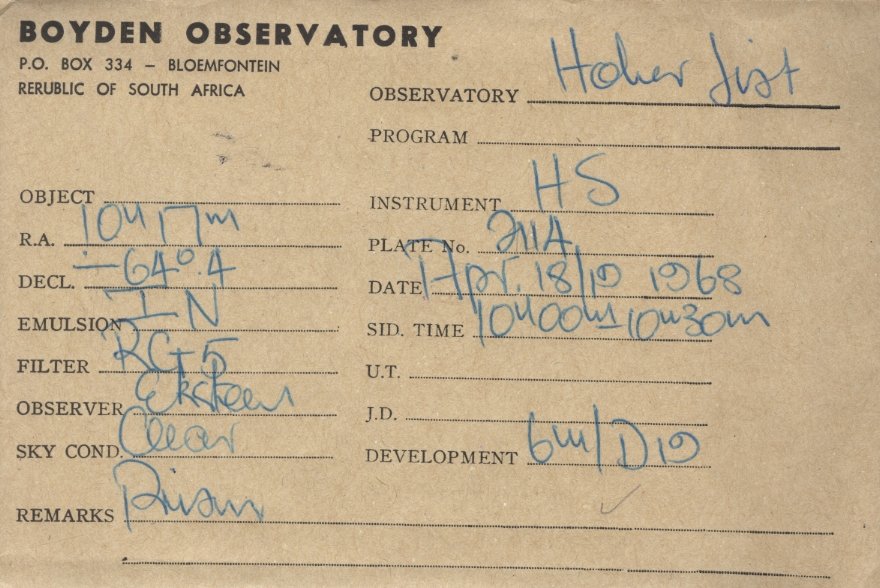 BOYDEN OBSERVATORY
P.O. BOX 334 – BLOEMFONTEIN
RERUBLIC OF SOUTH AFRICA
OBSERVATORY Hoher List
PROGRAM
OBJECT
INSTRUMENT HS
R.A. 10h 17m
PLATE No. 211A
DECL. -64°.4
DATE Apr. 18/19 1968
EMULSION I N
SID. TIME 10h00m-10h30m
FILTER RG 5
U.T.
OBSERVER Eksteen
J.D.
SKY COND. Clear
DEVELOPMENT 6m/D19
REMARKS Prism